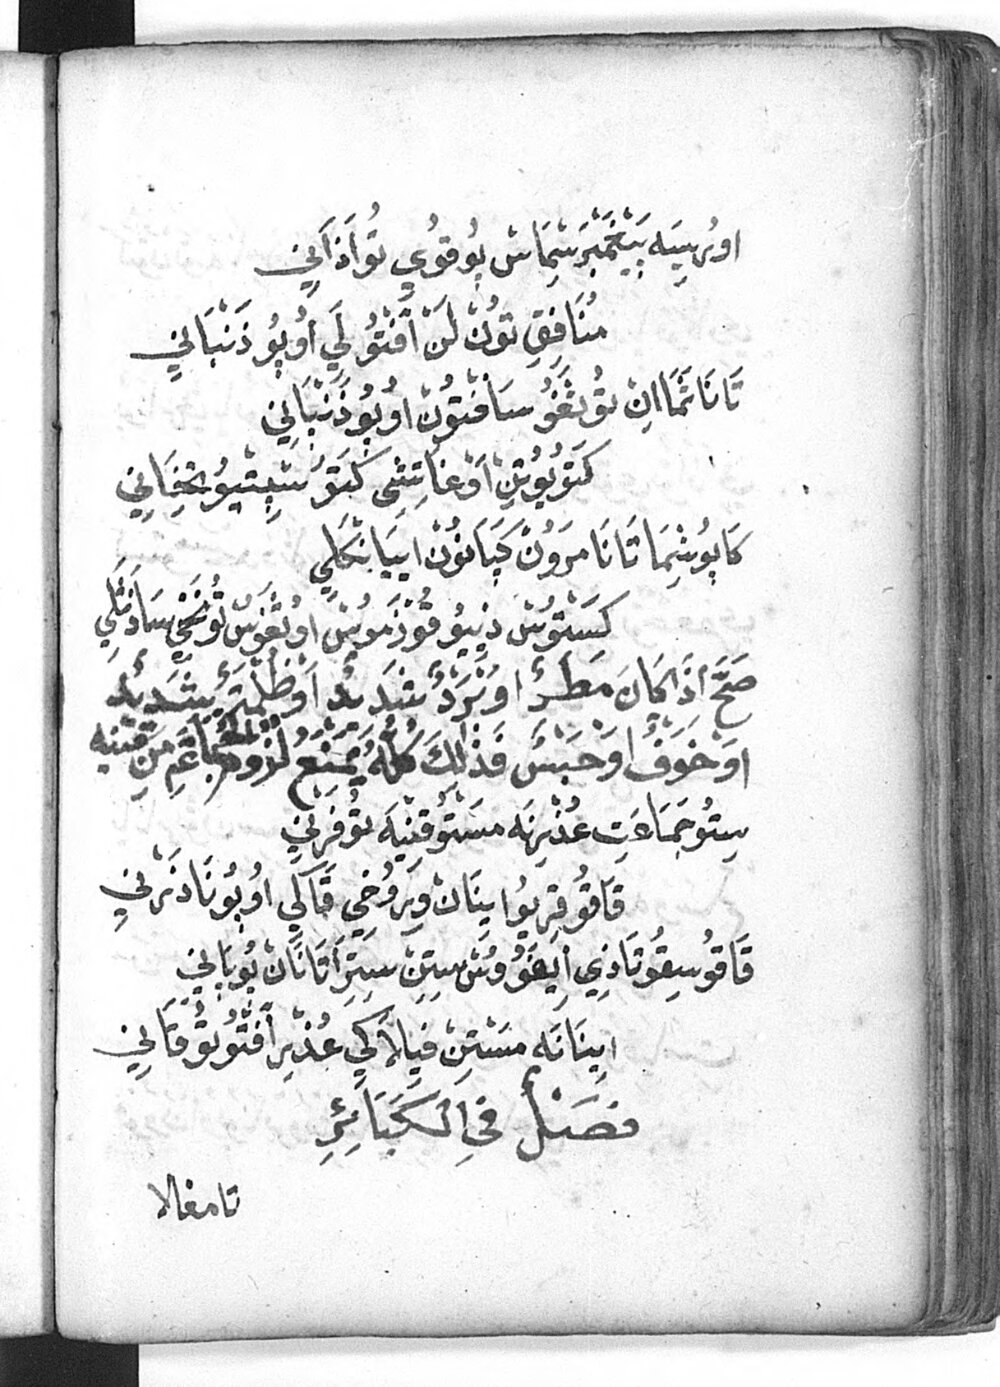 اوُرِسَه پَيْغَمْبَرشِمَاسْ پُوقوُيِ تُواَذَاَنِي
مُنَافِقِ تونْ لَنْ اَفْتُو لَيِ اُوپُو ذَنْبَانِي
تَانَا ثَمَا اِنْ تُو ثَغَوُ سَافْتُونْ اوُپُو ذَنْبَانِي
كَتَوُ يُوُتِنْ اَوْ غَاتِشِي كَتَوُ سْپِتِيُو يخِفَانِي
كَاپُوشِمَا تَانَا مرَوُنْ كَپَانوُنْ اِيپَا نْكَلِي
كَسْتوُسْ ذِپِيوُ قُوْذَموُسْ اوُ ثَغَوسْ توُ نْخَيِ سَاذَنْلِي
صَحَّ اذَا كَانَ مَطَرٌ اوْ بَرَدٌ شَدِيدٌ اَوْ ظُلْمَةٌ شَدِيدٌ
اوْ خَوفٌ اوْ حَبْسٌ فَذَلِكَ كُلُّهُ يَمْنَعُ لُزُومَ الْجَمَاعَةِ مِنْ قنيه
سِتُو جَمَاعَتِ عُذْرِنَه مَسْتَوُ قِنِيَه تُوفَرِنِي
قَاقوُ قِرِيوُ اِينَانْ وِرَوُخِي قَاكَلِي اوُپُو نَاذَرْنِي
قَاقوُ سِقوُتَاذِي اِيغَوُ وُسْ سِتِنْ سِتِرَاتَانَانْ پُوپَانِي
اِينَانَه مَسْتِنْ فيِلَاكِي عُذْرِ اَفْتُوُ توُقَانِي
فَصْلٌ فِي الْكَبَائِرِ
تامغالا